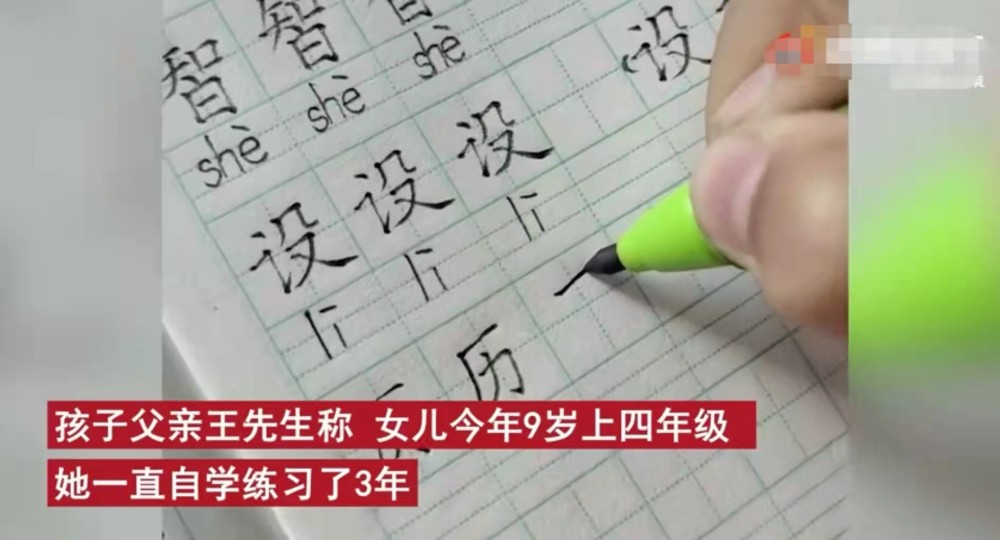 智 智 智
shè shè shè
设 设 设 设
li li li
历
孩子父亲王先生称 女儿今年9岁上四年级
她一直自学练习了3年